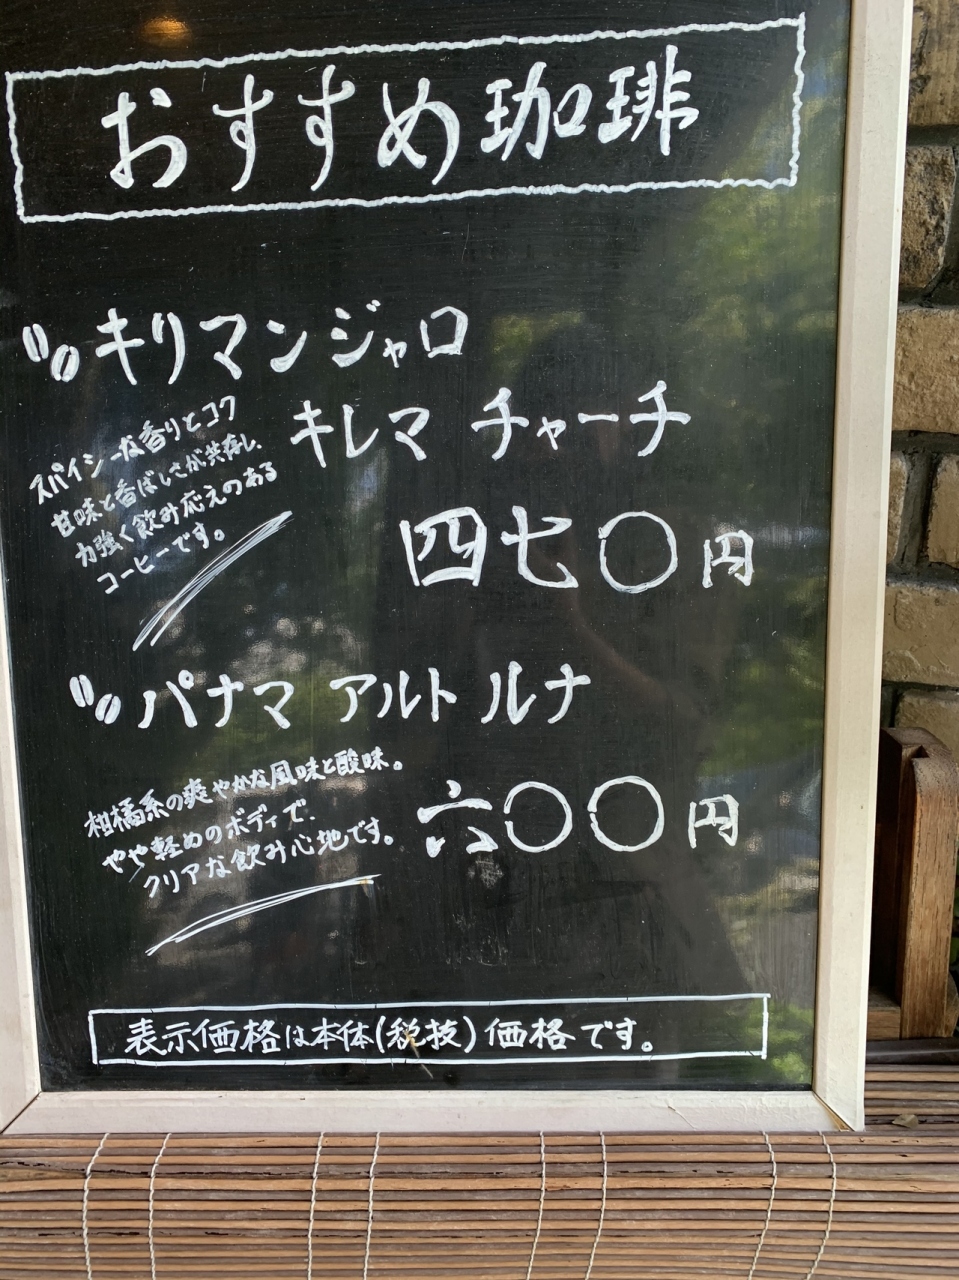 おすすめ珈琲
キリマンジャロ
キレマ チャーチ
スパイシーな香りとコク
甘味と香ばしさが共存し、
力強く飲み応えのある
コーヒーです。
四七〇円
パナマ アルト ルナ
柑橘系の爽やかな風味と酸味。
やや軽めのボディで、
クリアな飲み心地です。
六〇〇円
表示価格は本体(税抜)価格です。